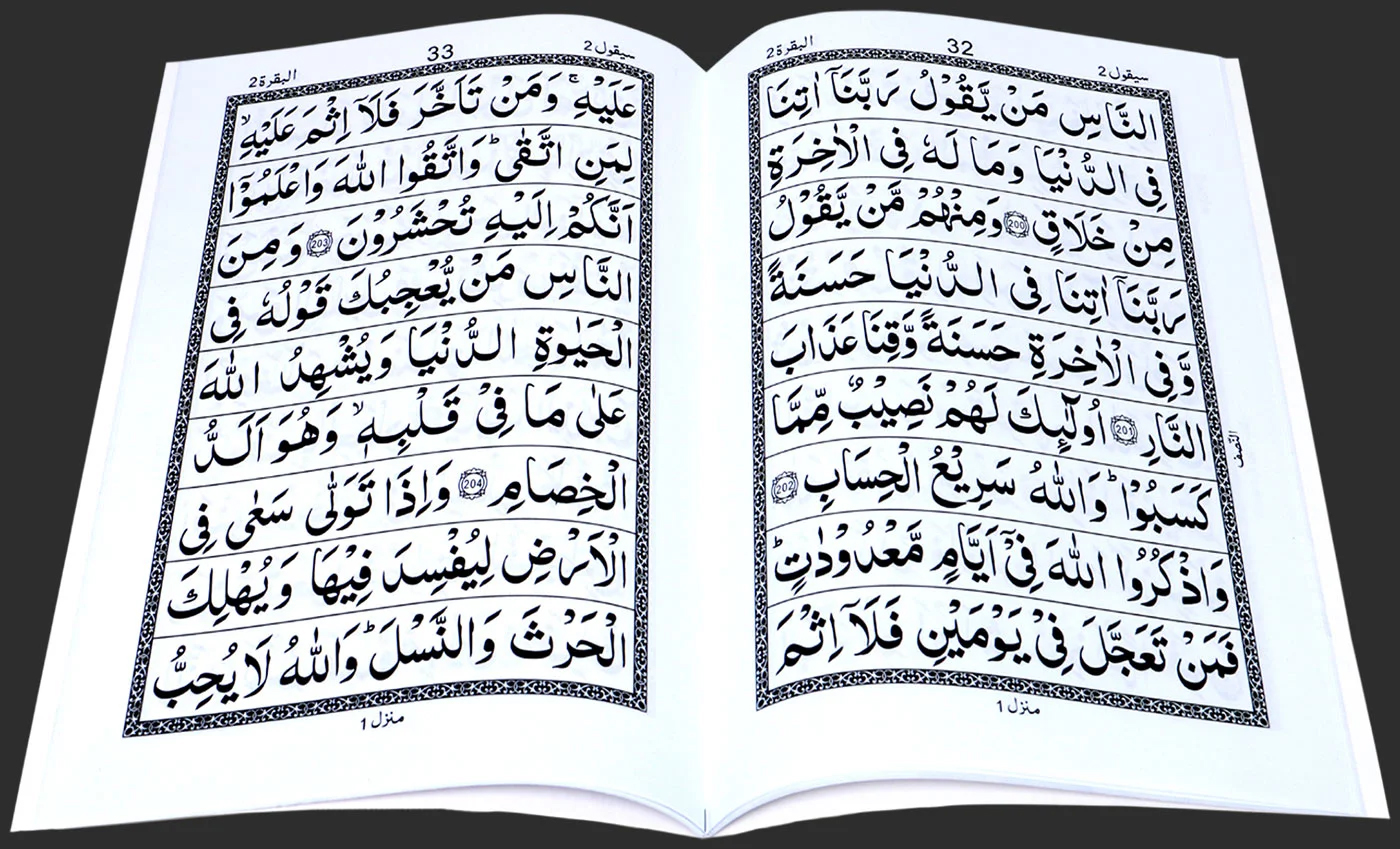 البقرة 2
32
سيقول 2
النَّاسِ مَنْ يَّقُوْلُ رَبَّنَآ اٰتِنَا
فِى الدُّنْيَا وَمَا لَهٗ فِى الْاٰخِرَةِ
مِنْ خَلَاقٍ 200 وَمِنْهُمْ مَّنْ يَّقُوْلُ
رَبَّنَآ اٰتِنَا فِى الدُّنْيَا حَسَنَةً
وَّفِى الْاٰخِرَةِ حَسَنَةً وَّقِنَا عَذَابَ
النَّارِ 201 اُولٰٓئِكَ لَهُمْ نَصِيْبٌ مِّمَّا
كَسَبُوْا ؕ وَاللّٰهُ سَرِيْعُ الْحِسَابِ 202
وَاذْكُرُوا اللّٰهَ فِىْٓ اَيَّامٍ مَّعْدُوْدٰتٍ ؕ
فَمَنْ تَعَجَّلَ فِىْ يَوْمَيْنِ فَلَآ اِثْمَ
النّصف
منزل 1
البقرة 2
33
سيقول 2
عَلَيْهِ ۚ وَمَنْ تَاَخَّرَ فَلَآ اِثْمَ عَلَيْهِ ۙ
لِمَنِ اتَّقٰى ؕ وَاتَّقُوا اللّٰهَ وَاعْلَمُوْٓا
اَنَّكُمْ اِلَيْهِ تُحْشَرُوْنَ 203 وَمِنَ
النَّاسِ مَنْ يُّعْجِبُكَ قَوْلُهٗ فِى
الْحَيٰوةِ الدُّنْيَا وَيُشْهِدُ اللّٰهَ
عَلٰى مَا فِىْ قَلْبِهٖ ۙ وَهُوَ اَلَدُّ
الْخِصَامِ 204 وَاِذَا تَوَلّٰى سَعٰى فِى
الْاَرْضِ لِيُفْسِدَ فِيْهَا وَيُهْلِكَ
الْحَرْثَ وَالنَّسْلَ ؕ وَاللّٰهُ لَا يُحِبُّ
منزل 1